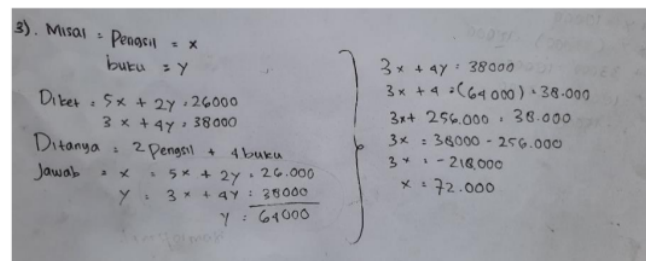 3). Misal = Pensil = x
buku = y
Diket = 5x + 2y = 26000
3x + 4y = 38000
Ditanya = 2 Pensil + 4 buku
Jawab = x = 5x + 2y = 26.000
y = 3x + 4y = 38000
y = 64000
3x + 4y = 38000
3x + 4 = (64 000) = 38.000
3x + 256.000 = 38.000
3x = 38000 - 256.000
3x = -218,000
x = 72.000